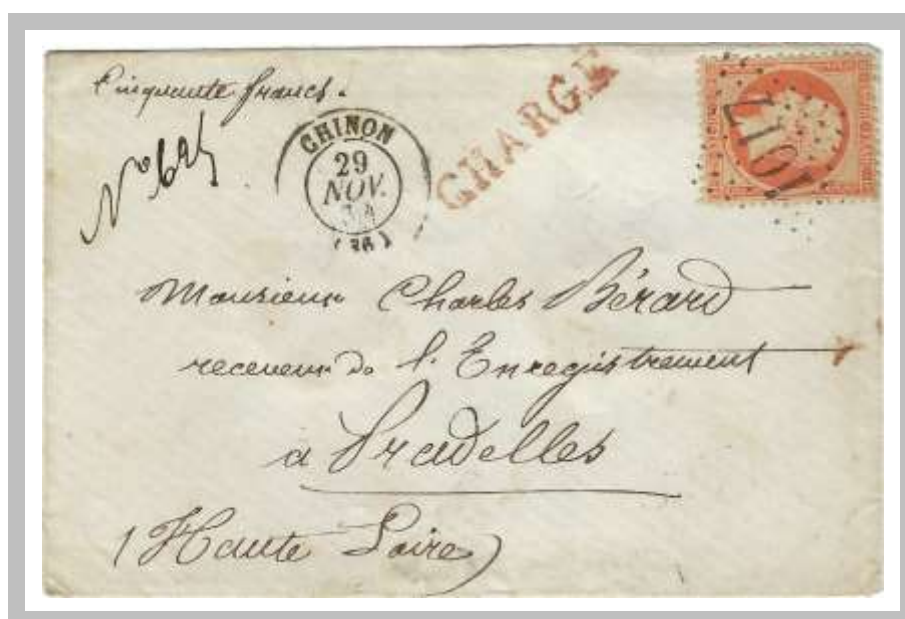 Cinquante francs.
No 695
CHINON
29
NOV.
64
(36)
CHARGE
1017
Monsieur Charles Bérard
receveur de l'Enregistrement
a Pradelles
(Haute Loire)